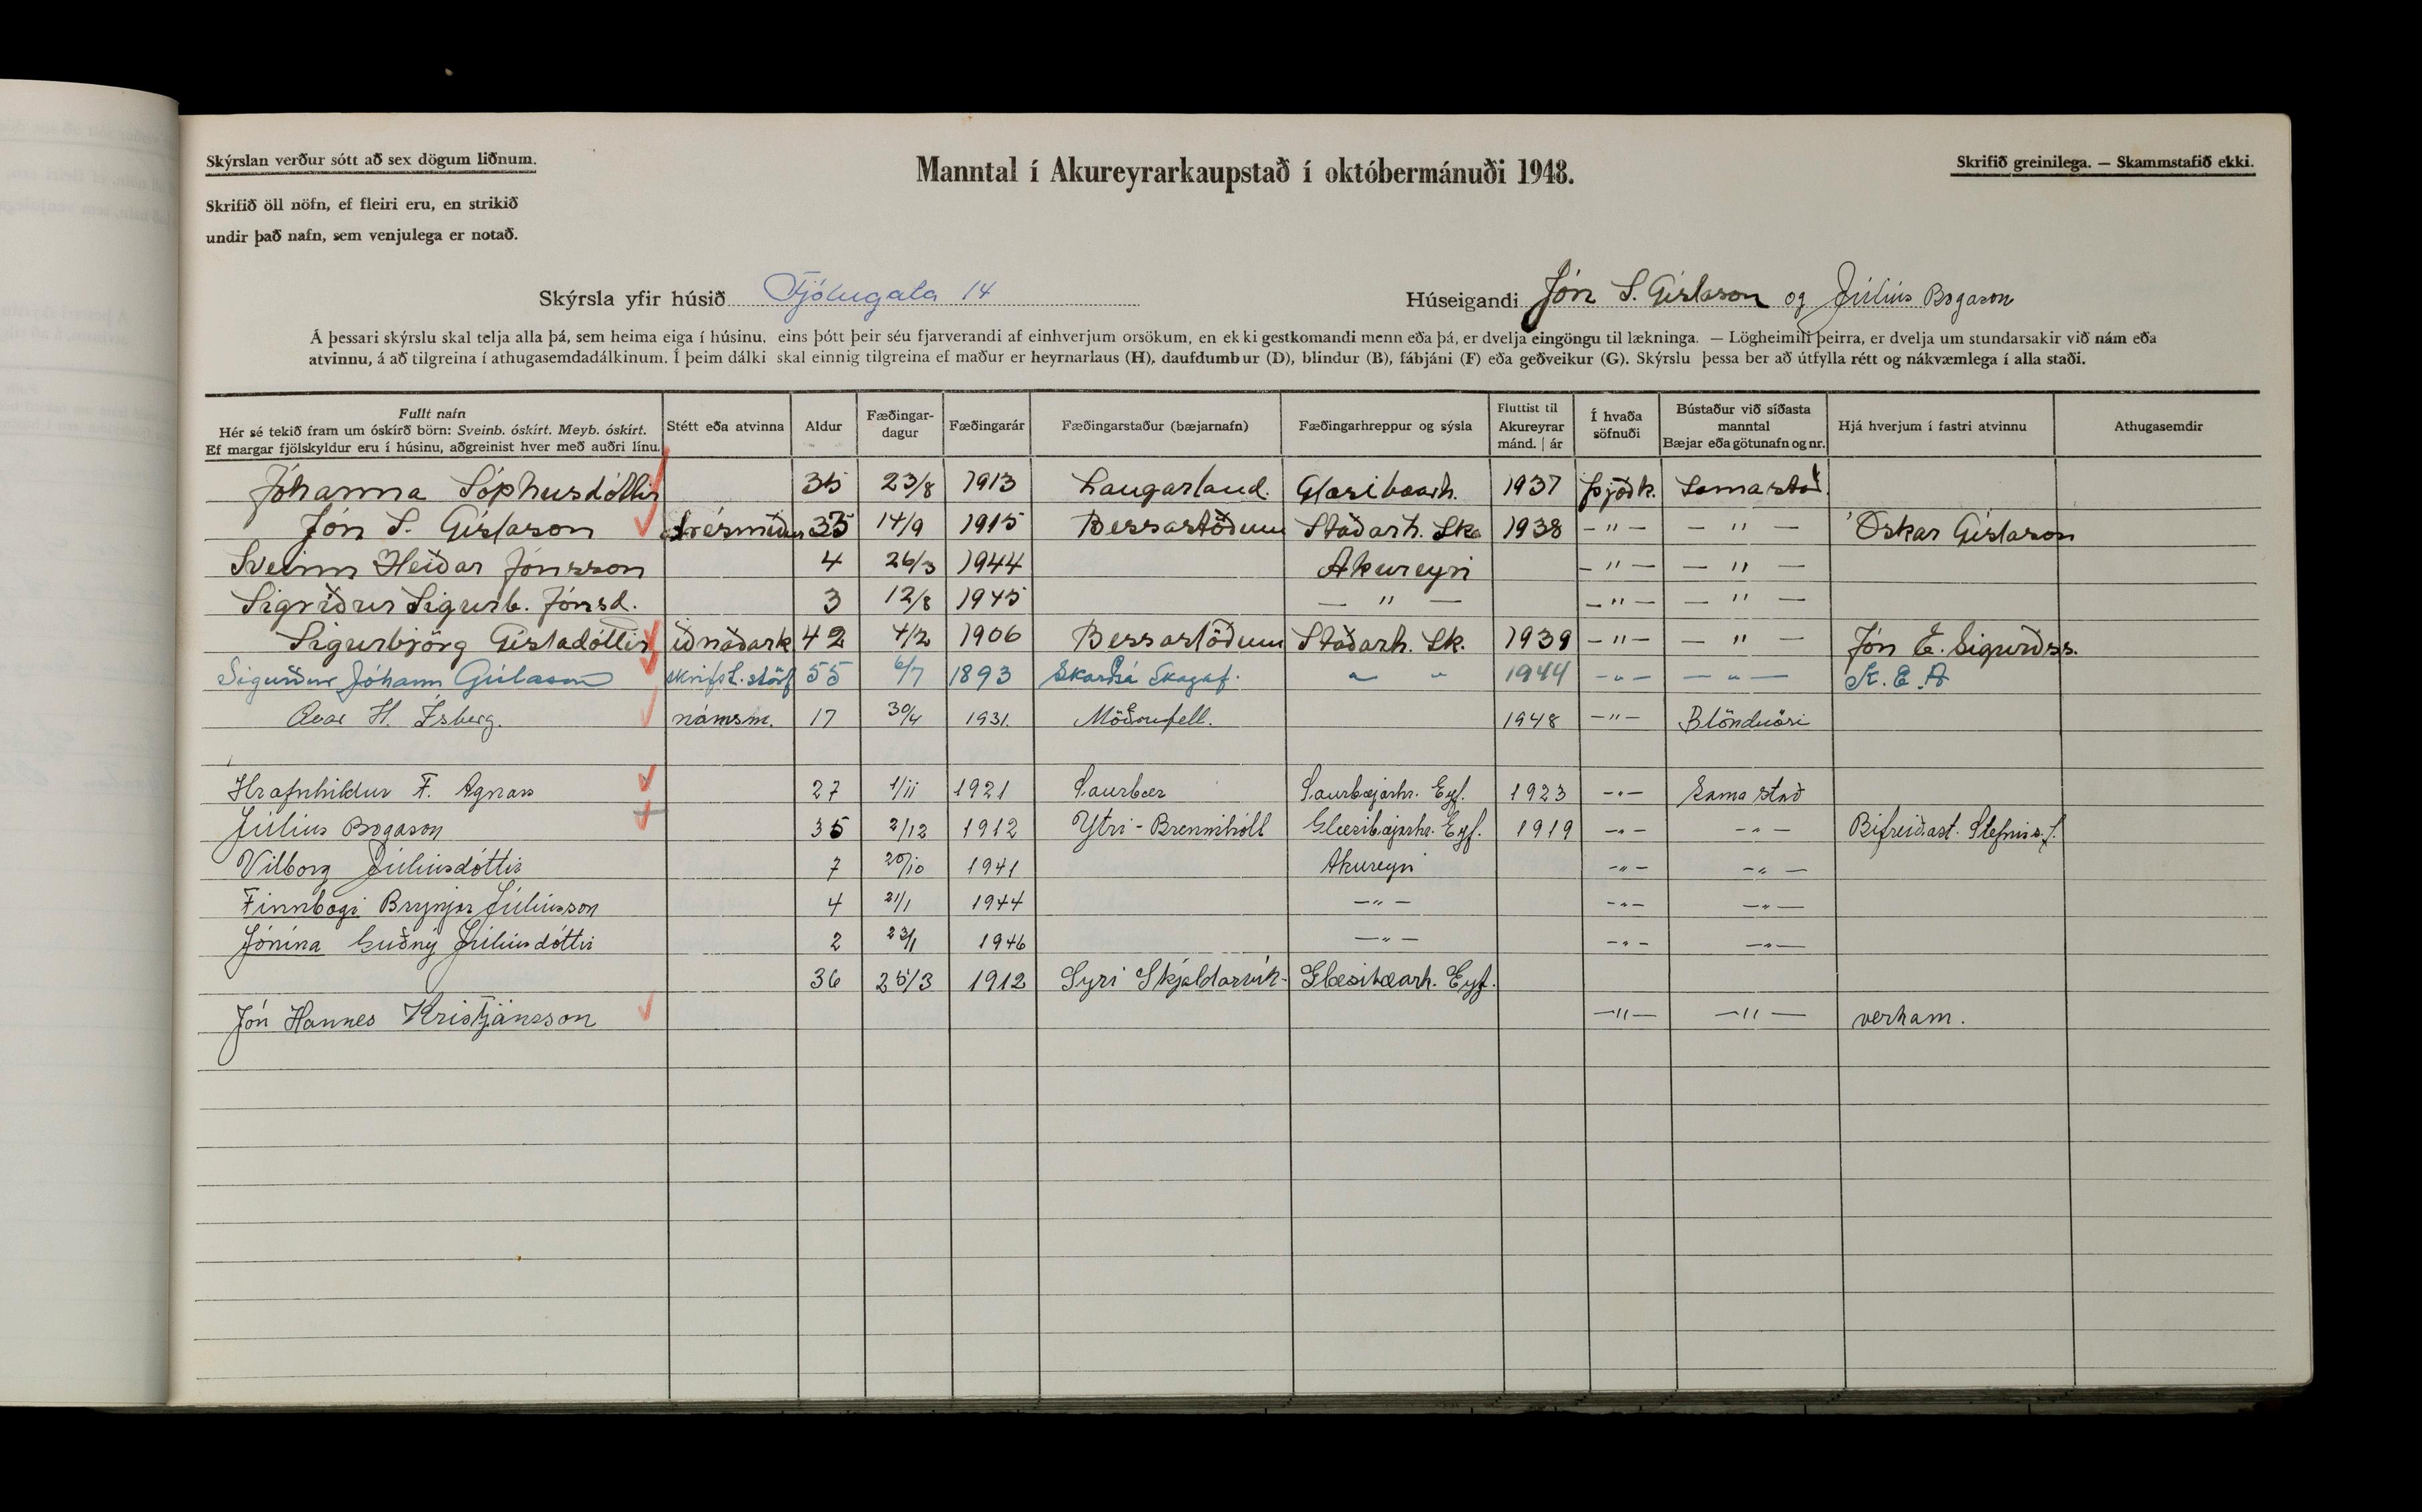 Skýrslan verður sótt að sex dögum liðnum.
Manntal í Akureyrarkaupstað í októbermánuði 1948.
Skrifið greinilega. — Skammstafið ekki.
Skrifið öll nöfn, ef fleiri eru, en strikið
undir það nafn, sem venjulega er notað.
Skýrsla yfir húsið Fjólugata 14
Húseigandi Jón S. Gíslason og Júlíus Bogason
Á þessari skýrslu skal telja alla þá, sem heima eiga í húsinu, eins þótt þeir séu fjarverandi af einhverjum orsökum, en ekki gestkomandi menn eða þá, er dvelja eingöngu til lækninga. — Lögheimili þeirra, er dvelja um stundarsakir við nám eða
atvinnu, á að tilgreina í athugasemdadálkinum. Í þeim dálki skal einnig tilgreina ef maður er heyrnarlaus (H), daufdumbur (D), blindur (B), fábjáni (F) eða geðveikur (G). Skýrslu þessa ber að útfylla rétt og nákvæmlega í alla staði.
Fullt nafn
Hér sé tekið fram um óskírð börn: Sveinb. óskírt. Meyb. óskírt.
Ef margar fjölskyldur eru í húsinu, aðgreinist hver með auðri línu.
Stétt eða atvinna
Aldur
Fæðingar-
dagur
Fæðingarár
Fæðingarstaður (bæjarnafn)
Fæðingarhreppur og sýsla
Fluttist til
Akureyrar
mánd. | ár
Í hvaða
söfnuði
Bústaður við síðasta
manntal
Bæjar eða götunafn og nr.
Hjá hverjum í fastri atvinnu
Athugasemdir
Jóhanna Sóphusdóttir 35 23/8 1913 Laugarland. Glæsibæarh. 1937 þjóðk. Samastað.
Jón S. Gíslason trésmiður 33 14/9 1915 Bessastöðum Staðarh. Sk. 1938 -"- -"- Óskar Gíslason
Sveinn Heiðar Jónsson 4 26/3 1944 Akureyri -"- -"-
Sigríður Sigurb. Jónsd. 3 12/8 1945 -"- -"- -"-
Sigurbjörg Gísladóttir iðnaðark 42 4/2 1906 Bessastöðum Staðarh. Sk. 1939 -"- -"- Jón E. Sigurðss.
Sigurður Jóhann Gíslason skrifst.störf 55 6/7 1893 Skarðsá Skagaf. " " 1944 -"- -"- K.E.A
H. Ísberg. námsm. 17 30/4 1931. Möðrufell. 1948 -"- Blönduósi
Hrafnhildur F. Agnars 27 1/11 1921 Saurbær Saurbæjarhr. Eyf. 1923 -"- Sama stað
Júlíus Bogason 35 2/12 1912 Ytri-Brennihóll Glæsibæjarhr. Eyf. 1919 -"- -"- Bifreiðast. Stefnir s.f.
Vilborg Júlíusdóttir 7 20/10 1941 Akureyri -"- -"-
Finnbogi Brynjar Júlíusson 4 21/1 1944 -"- -"- -"-
Jónína Guðný Júlíusdóttir 2 23/1 1946 -"- -"- -"-
36 25/3 1912 Syri Skjaldarvík- Glæsibæarh. Eyf.
Jón Hannes Kristjánsson -"- -"- verkam.